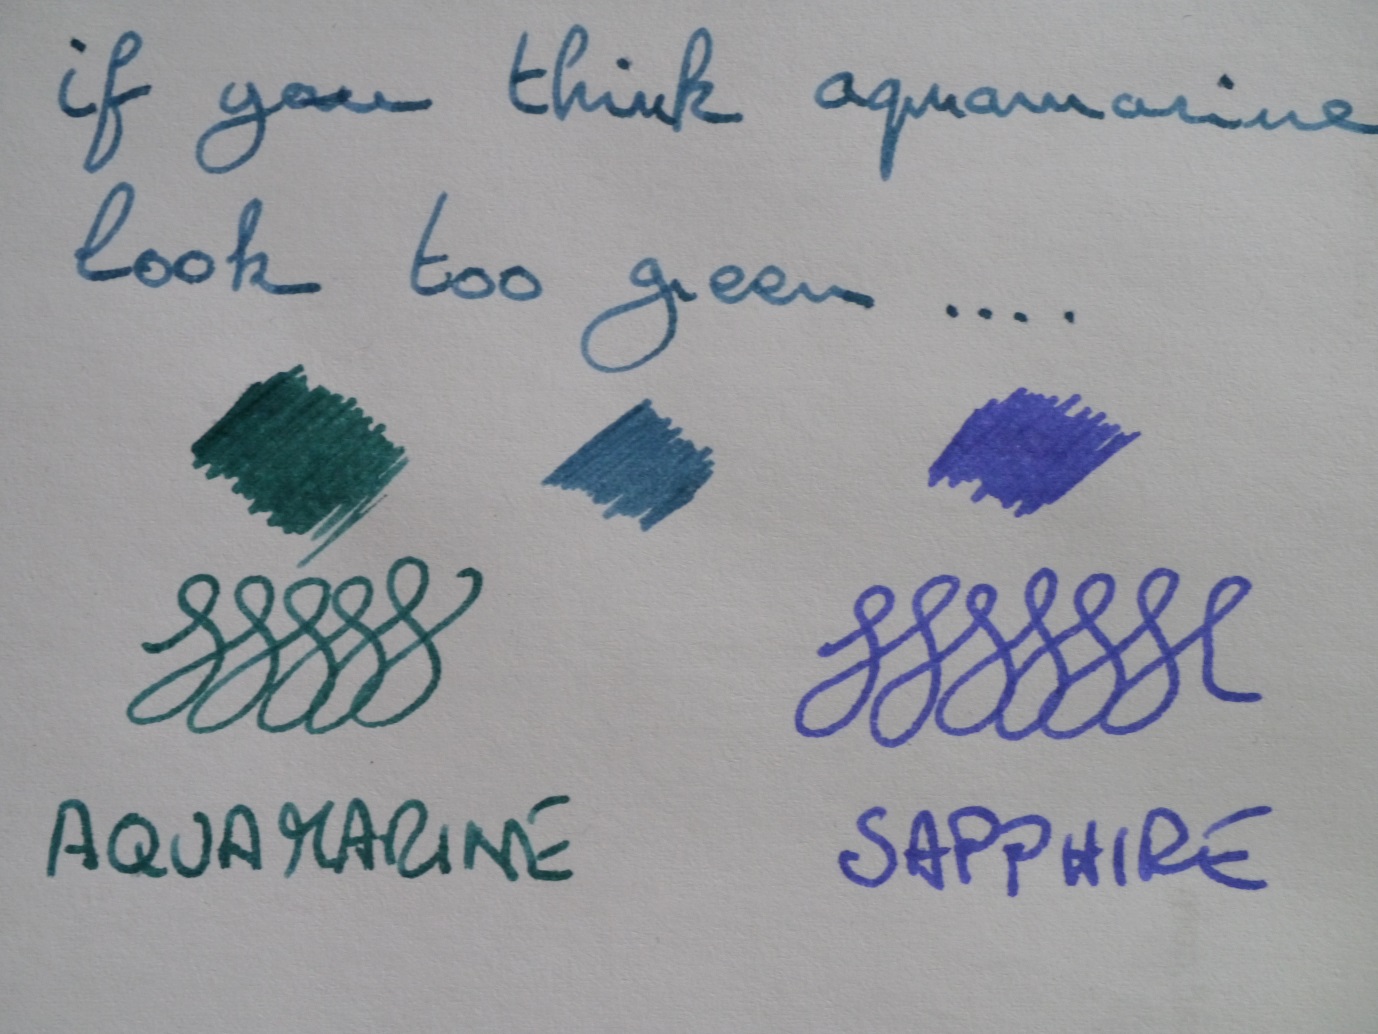 if you think aquamarine
look too green ....
AQUAMARINE SAPPHIRE